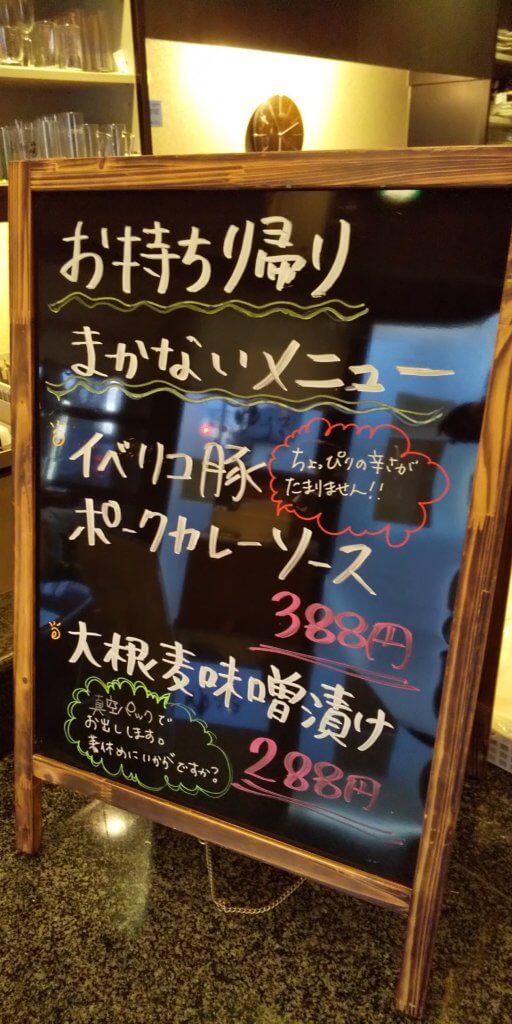 お持ち帰り
まかないメニュー
イベリコ豚
ちょっぴりの辛さが
たまりません!!
ポークカレーソース
388円
大根麦味噌漬け
真空パックで
お出しします。
箸休めにいかがですか?
288円